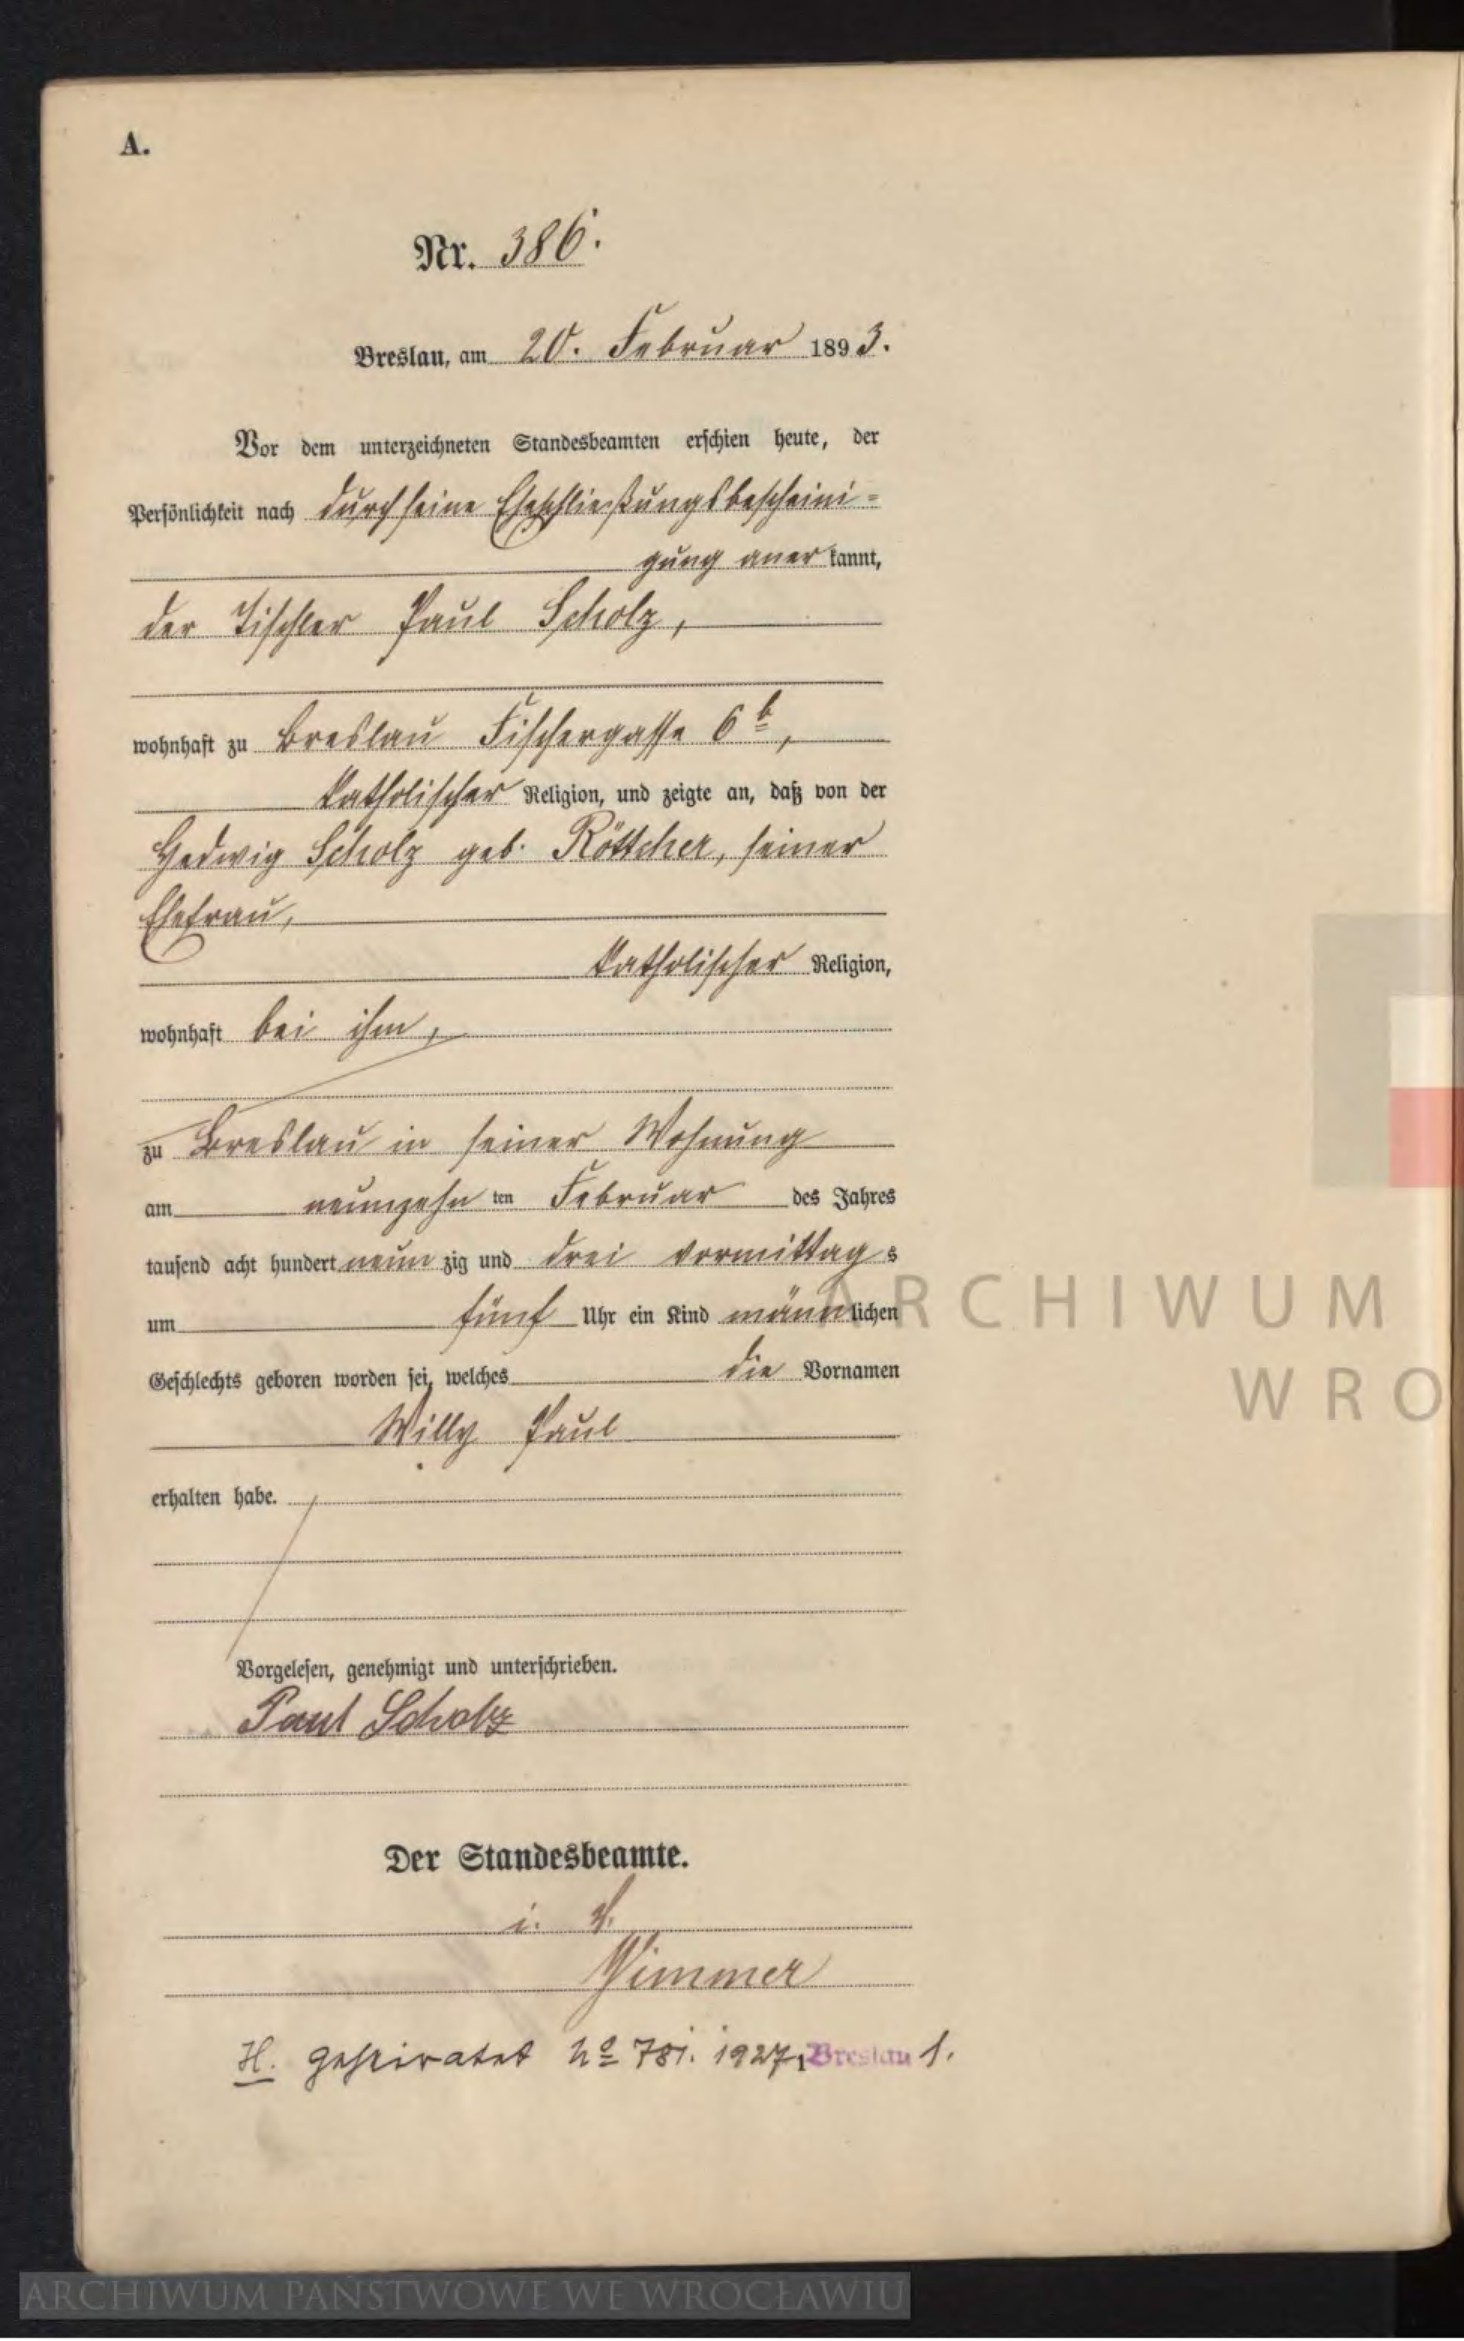 A.
Nr. 386.
Breslau, am 20. Februar 1893.
Vor dem unterzeichneten Standesbeamten erschien heute, der
Persönlichkeit nach durch seine Eheschließungsbescheini=
gung anerkannt,
der Tischler Paul Scholz,
wohnhaft zu Breslau Fischergasse 6 b,
katholischer Religion, und zeigte an, daß von der
Hedwig Scholz geb. Röttcher, seiner
Ehefrau,
katholischer Religion,
wohnhaft bei ihm,
zu Breslau in seiner Wohnung
am neunzehnten Februar des Jahres
tausend acht hundert neunzig und drei vormittags
um fünf Uhr ein Kind männlichen
Geschlechts geboren worden sei, welches die Vornamen
Willy Paul
erhalten habe.
Vorgelesen, genehmigt und unterschrieben.
Paul Scholz
Der Standesbeamte.
i. V.
Wimmer
H. geheiratet No 781. 1927, Breslau 1.
ARCHIWUM
WRO
ARCHIWUM PAŃSTWOWE WE WROCŁAWIU